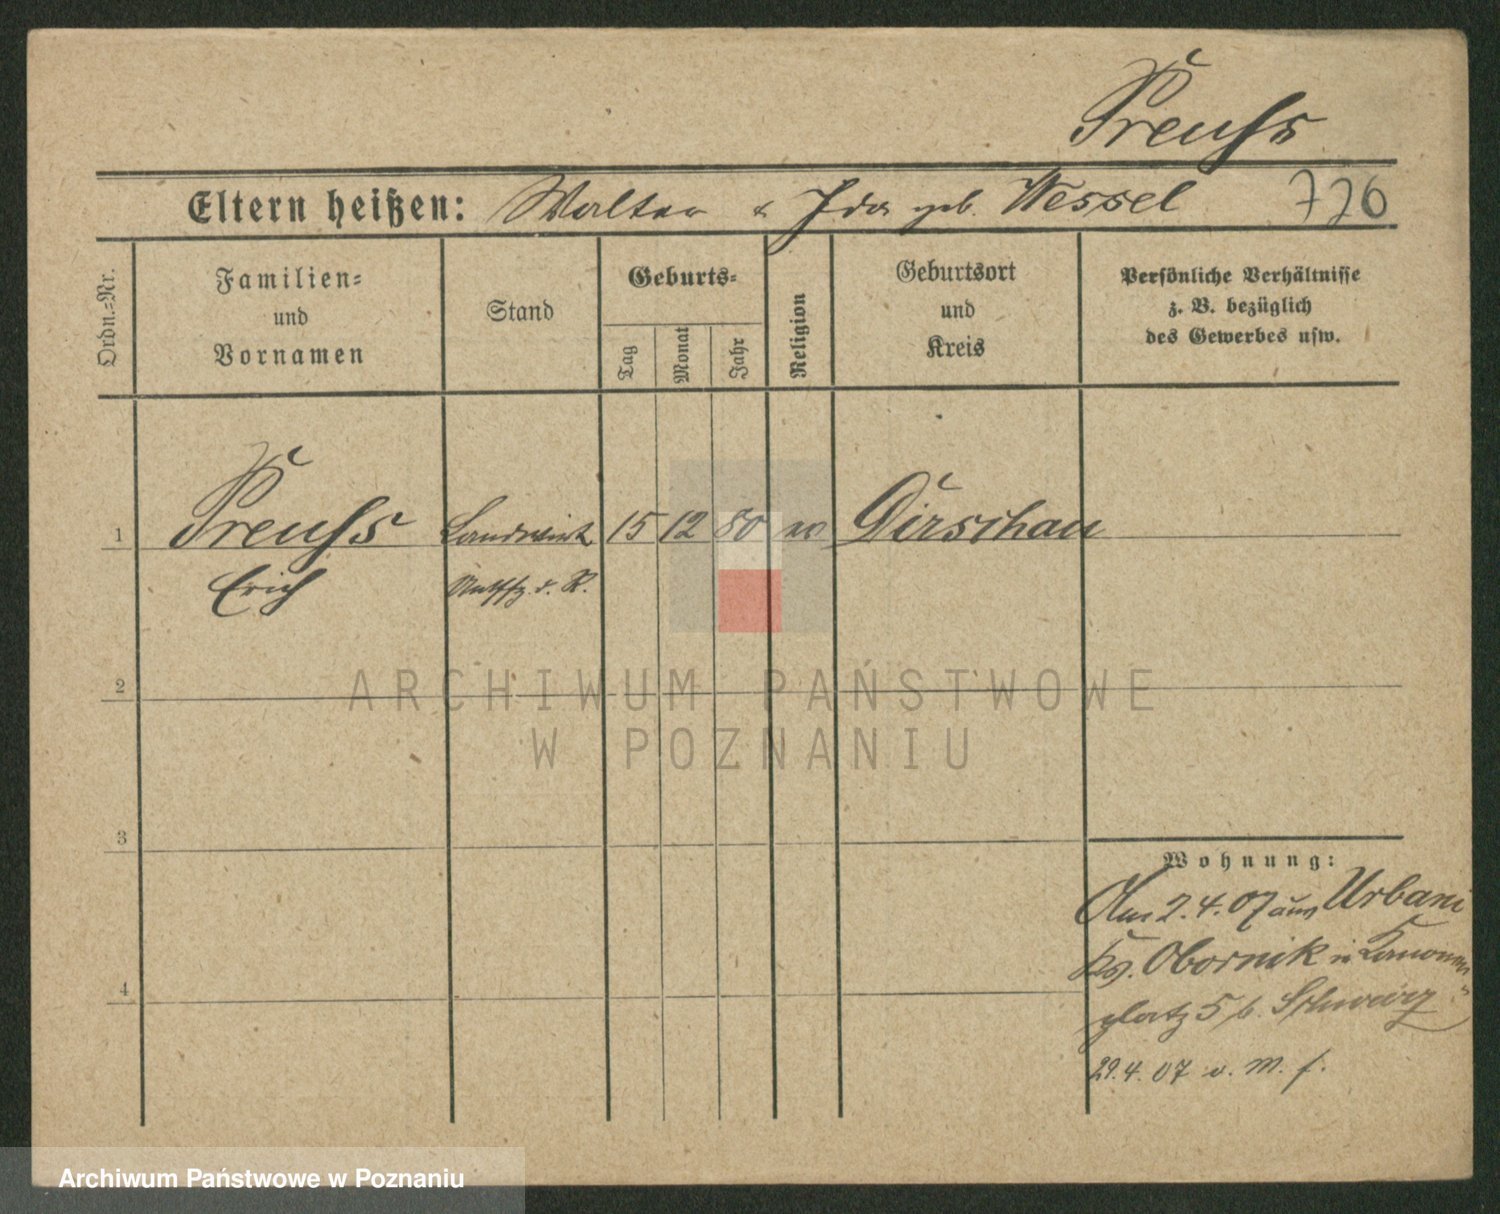 Preuß
Eltern heißen: Walter & Ida geb. Wessel 776
Ordn.-Nr.
Familien-
und
Vornamen
Stand
Geburts-
Tag
Monat
Jahr
Religion
Geburtsort
und
Kreis
Persönliche Verhältnisse
z. B. bezüglich
des Gewerbes usw.
1 Preuß Landwirt 15 12 80 Dirschau
Erich d. R.
2
ARCHIWUM PAŃSTWOWE
W POZNANIU
3
Wohnung:
Am 2.4.07 aus Urbani
Obornik in Kanonen
4
platz 5 b.
29.4.07 v. M. f.
Archiwum Państwowe w Poznaniu